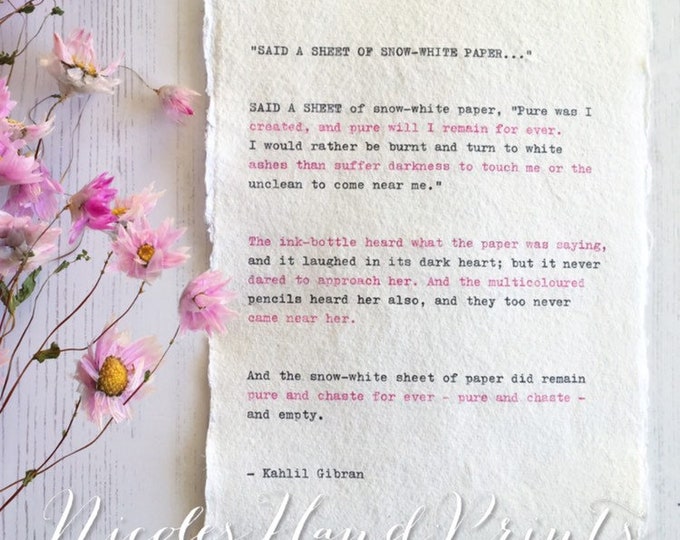 "SAID A SHEET OF SNOW-WHITE PAPER..."
SAID A SHEET of snow-white paper, "Pure was I
created, and pure will I remain for ever.
I would rather be burnt and turn to white
ashes than suffer darkness to touch me or the
unclean to come near me."
The ink-bottle heard what the paper was saying,
and it laughed in its dark heart; but it never
dared to approach her. And the multicoloured
pencils heard her also, and they too never
came near her.
And the snow-white sheet of paper did remain
pure and chaste for ever - pure and chaste -
and empty.
- Kahlil Gibran
Nicoles Hand Prints